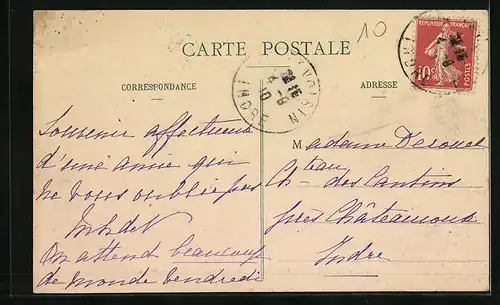 10
CARTE POSTALE
CORRESPONDANCE
ADRESSE
REPUBLIQUE FRANÇAISE
10c
POSTES
INDRE
Souvenir affectueux
d'une amie qui
ne vous oublie pas
On attend beaucoup
de monde vendredi
Madame Derouet
Chateau
des Cantins
près Châteauroux
Indre